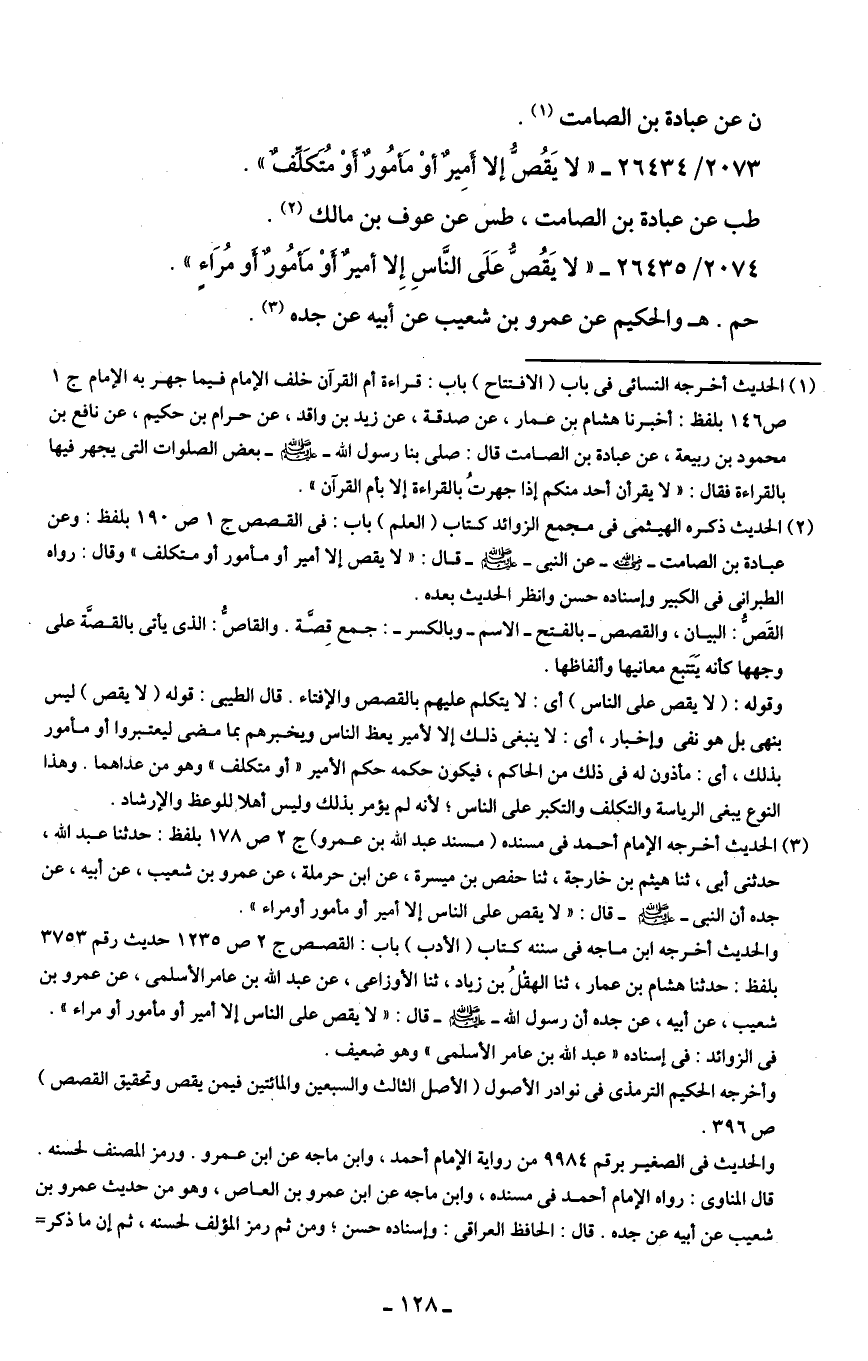 ن عن عبادة بن الصامت (١) .
٢٠٧٣/ ٢٦٤٣٤ ـ « لا يَقُصُّ إلا أَمِيرٌ أوْ مَأمُورٌ أَوْ مُتَكَلِّفٌ » .
طب عن عبادة بن الصامت ، طس عن عوف بن مالك (٢) .
٢٠٧٤/ ٢٦٤٣٥ ـ « لا يَقُصُّ عَلَى النَّاسِ إِلا أميرٌ أَوْ مَأمُورٌ أَو مُرَاءٍ » .
حم . هـ والحكيم عن عمرو بن شعيب عن أبيه عن جده (٣) .
(١) الحديث أخرجه النسائى فى باب ( الافتتاح ) باب : قراءة أم القرآن خلف الإمام فيما جهر به الإمام ج ١
ص١٤٦ بلفظ : أخبرنا هشام بن عمار ، عن صدقة ، عن زيد بن واقد ، عن حرام بن حكيم ، عن نافع بن
محمود بن ربيعة ، عن عبادة بن الصامت قال : صلى بنا رسول الله ـ ﷺ ـ بعض الصلوات التى يجهر فيها
بالقراءة فقال : « لا يقرأن أحد منكم إذا جهرتُ بالقراءة إلا بأم القرآن » .
(٢) الحديث ذكره الهيثمى فى مجمع الزوائد كتاب ( العلم ) باب : فى القصص ج ١ ص ١٩٠ بلفظ : وعن
عبادة بن الصامت ـ رضي الله عنه ـ عن النبى ـ ﷺ ـ قال : « لا يقص إلا أمير أو مأمور أو متكلف » وقال : رواه
الطبرانى فى الكبير وإسناده حسن وانظر الحديث بعده .
القَصُّ : البيان ، والقصص ـ بالفتح ـ الاسم ـ وبالكسر ـ : جمع قِصَّة . والقاصُّ : الذى يأتى بالقصَّة على
وجهها كأنه يَتَتبع معانيها وألفاظها .
وقوله : ( لا يقص على الناس ) أى : لا يتكلم عليهم بالقصص والإفتاء . قال الطيبى : قوله ( لا يقص ) ليس
بنهى بل هو نفى وإخبار ، أى : لا ينبغى ذلك إلا لأمير يعظ الناس ويخبرهم بما مضى ليعتبروا أو مأمور
بذلك ، أى : مأذون له فى ذلك من الحاكم ، فيكون حكمه حكم الأمير « أو متكلف » وهو من عداهما . وهذا
النوع يبغى الرياسة والتكلف والتكبر على الناس ؛ لأنه لم يؤمر بذلك وليس أهلا للوعظ والإرشاد .
(٣) الحديث أخرجه الإمام أحمد فى مسنده ( مسند عبد الله بن عمرو) ج ٢ ص ١٧٨ بلفظ : حدثنا عبد الله ،
حدثنى أبى ، ثنا هيثم بن خارجة ، ثنا حفص بن ميسرة ، عن ابن حرملة ، عن عمرو بن شعيب ، عن أبيه ، عن
جده أن النبى ـ ﷺ ـ قال : « لا يقص على الناس إلا أمير أو مأمور أومراء » .
والحديث أخرجه ابن ماجه فى سننه كتاب ( الأدب ) باب : القصص ج ٢ ص ١٢٣٥ حديث رقم ٣٧٥٣
بلفظ : حدثنا هشام بن عمار ، ثنا الهقْلُ بن زياد ، ثنا الأوزاعى ، عن عبد الله بن عامرالأسلمى ، عن عمرو بن
شعيب ، عن أبيه ، عن جده أن رسول الله ـ ﷺ ـ قال : « لا يقص على الناس إلا أمير أو مأمور أو مراء » .
فى الزوائد : فى إسناده « عبد الله بن عامر الأسلمى » وهو ضعيف .
وأخرجه الحكيم الترمذى فى نوادر الأصول ( الأصل الثالث والسبعين والمائتين فيمن يقص وتحقيق القصص )
ص ٣٩٦ .
والحديث فى الصغير برقم ٩٩٨٤ من رواية الإمام أحمد ، وابن ماجه عن ابن عمرو . ورمز المصنف لحسنه .
قال المناوى : رواه الإمام أحمد فى مسنده ، وابن ماجه عن ابن عمرو بن العاص ، وهو من حديث عمرو بن
شعيب عن أبيه عن جده . قال : الحافظ العراقى : وإسناده حسن ؛ ومن ثم رمز المؤلف لحسنه ، ثم إن ما ذكر=
ـ ١٢٨ ـ